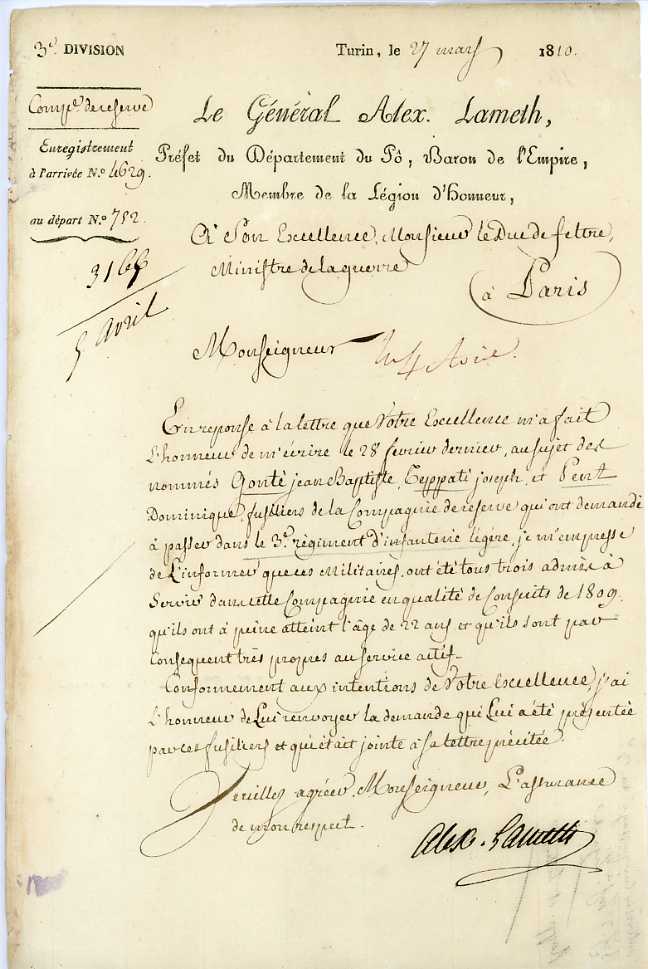 3e. DIVISION
Turin, le 27 mars 1810.
Compie. de reserve
Enregistrement
à l'arrivée N.o 4629.
au départ N.o 752.
5 avril
Le Général Alex. Lameth,
Préfet du Département du Pô, Baron de l'Empire,
Membre de la Légion d'Honneur,
A Son Excellence, Monsieur le Duc de feltre,
Ministre de la guerre
à Paris
Monseigneur
En reponse à la lettre que Votre Excellence m'a fait
l'honneur de m'écrire le 28 fevrier dernier, au sujet des
nommés Gonté jean Baptiste, Teppati joseph, et
Dominique, fusiliers de la Compagnie de reserve qui ont demandé
à passer dans le 3e. règiment d'infanterie légére, je m'empresse
de l'informer que ces Militaires, ont été tous trois admis à
Servir dans cette Compagnie en qualité de Conscrits de 1809.
qu'ils ont à peine atteint l'âge de 22 ans et qu'ils sont par
Consequent très propres au service actif.
Conformement aux intentions de Votre Excellence, j'ai
l'honneur de Lui renvoyer la demande qui Lui a été présentée
par ces fusiliers et qui était jointe à sa lettre précitée.
Veuillez agréer, Monseigneur, L'assurance
de mon respect.
Alex. Lameth